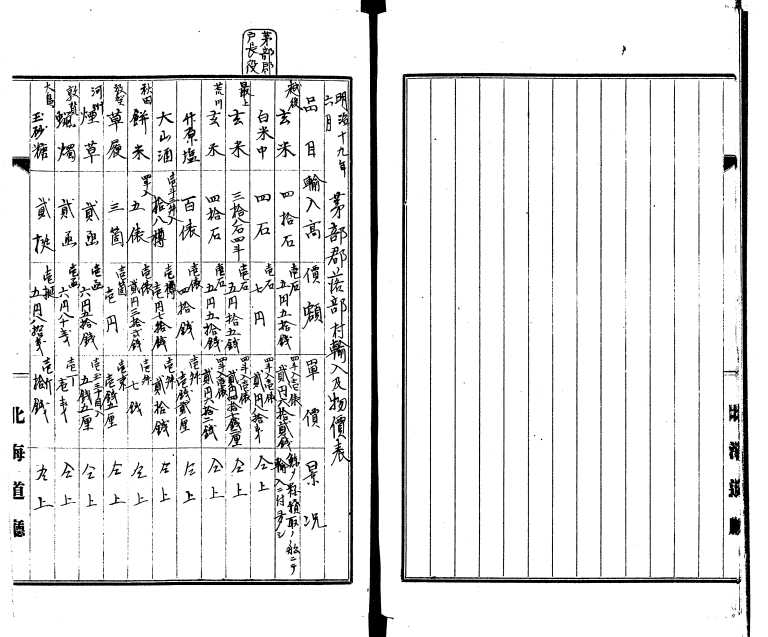 茅部郡
戸長役
明治十九年
六月
茅部郡落部村輸入及物價表
品目 輸入高 價額 單價 景況
越後 玄米 四拾石 壱石 五円五拾銭 四斗入壱俵 貳円六拾貳銭
白米中 四石 壱石 七円 四斗入壱俵 貳円八拾銭 仝上
最上 玄米 三拾石四斗 壱石 五円拾五銭 四斗入壱俵 仝上
荒川 玄米 四拾石 壱石 五円五拾銭 四斗入壱俵 貳円六拾二銭 仝上
竹原塩 百俵 壱俵 四拾銭 壱升 壱銭貳厘 仝上
大山酒 拾八樽 壱樽 壱円七拾銭 壱升 貳拾銭 仝上
秋田 餅米 四斗入 五俵 壱俵 貳円三拾弐銭 壱升 七銭 仝上
敦賀 草履 三箇 壱箇 壱円 壱足 壱銭五厘 仝上
煙草 貳函 壱函 六円五拾銭 五銭五厘 仝上
敦賀 蝋燭 貳函 壱函 六円八十銭 壱丁 仝上
大島 玉砂糖 貳挺 壱挺 五円八拾銭 壱斤 拾銭 仝上
北海道廳
北海道廳